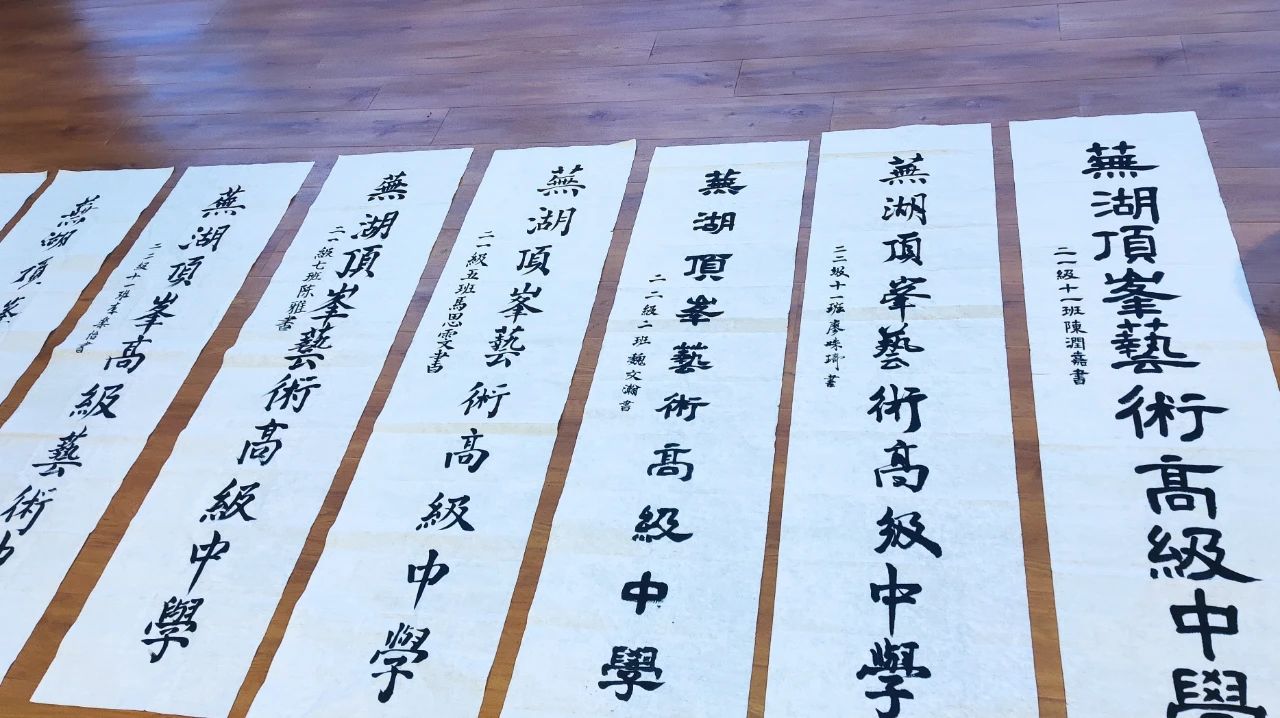 蕪湖頂峯藝術高級中學
二一級十一班陳潤嘉書
蕪湖頂峯藝術高級中學
二二級十一班廖咏琦書
蕪湖頂峯藝術高級中學
二二級二班魏文瀚書
蕪湖頂峯藝術高級中學
二一級五班馬思雯書
蕪湖頂峯藝術高級中學
二一級七班陈雅書
蕪湖頂峯高級藝術中
二二級十一班書
蕪湖頂峯